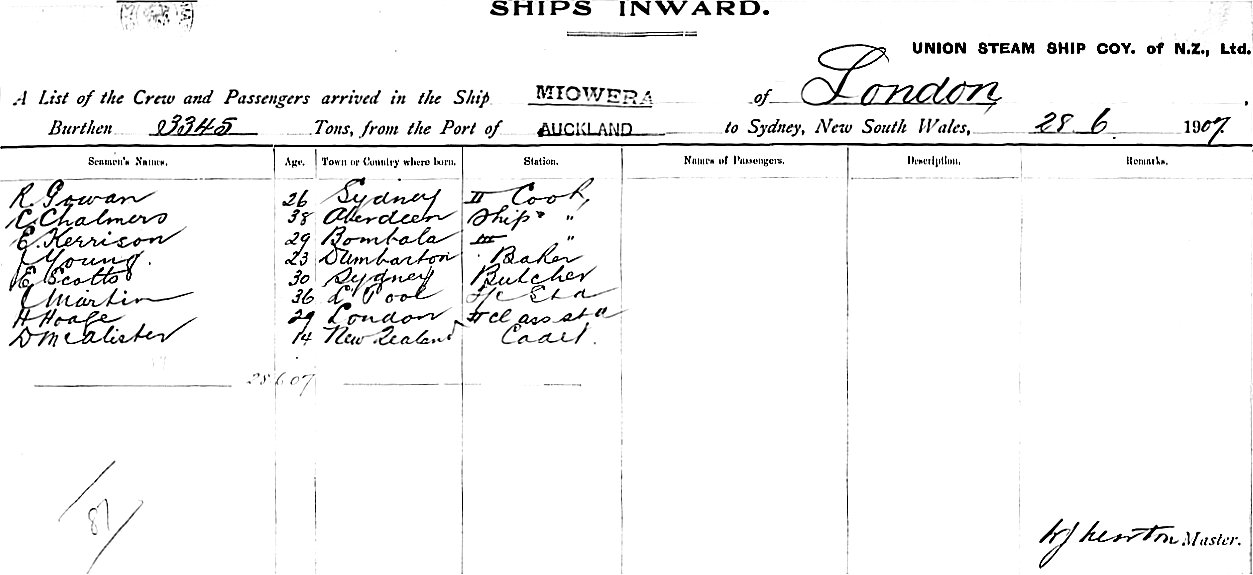 SHIPS INWARD.
UNION STEAM SHIP COY. of N.Z., Ltd.
A List of the Crew and Passengers arrived in the Ship MIOWERA of London
Burthen 3345 Tons, from the Port of AUCKLAND to Sydney, New South Wales, 28 6 1907
Seamen's Names. Age. Town or Country where born. Station. Names of Passengers. Description. Remarks.
R. Gowan 26 Sydney II Cook,
C. Chalmers 38 Aberdeen Ship's "
E. Kerrison 29 Bombala III "
J Young. 23 Dumbarton Baker
E Scotts 30 Sydney Butcher
J Martin 36 L'Pool
H Hoare 29 London II class std
D McAlister 14 New Zealand Cadet.
28 6 07
87
WJ Newton Master.